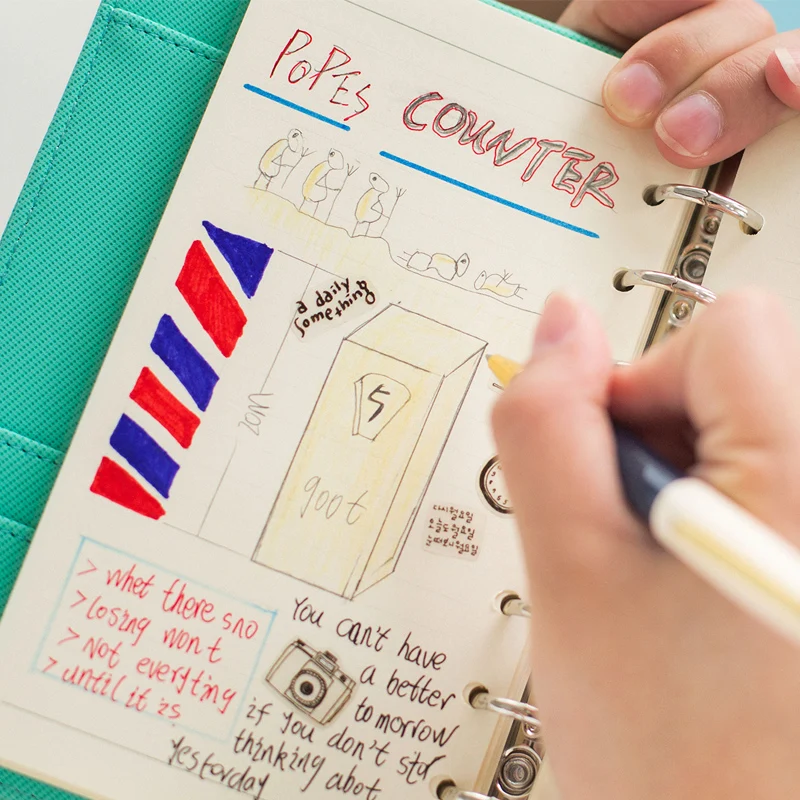 POPES COUNTER
a daily
something
20M
5
900t
> whet there sno
> losing won t
> Not everyting
> until it is
You can't have
a better
tomorrow
if you don't
thinking abot
yesterday